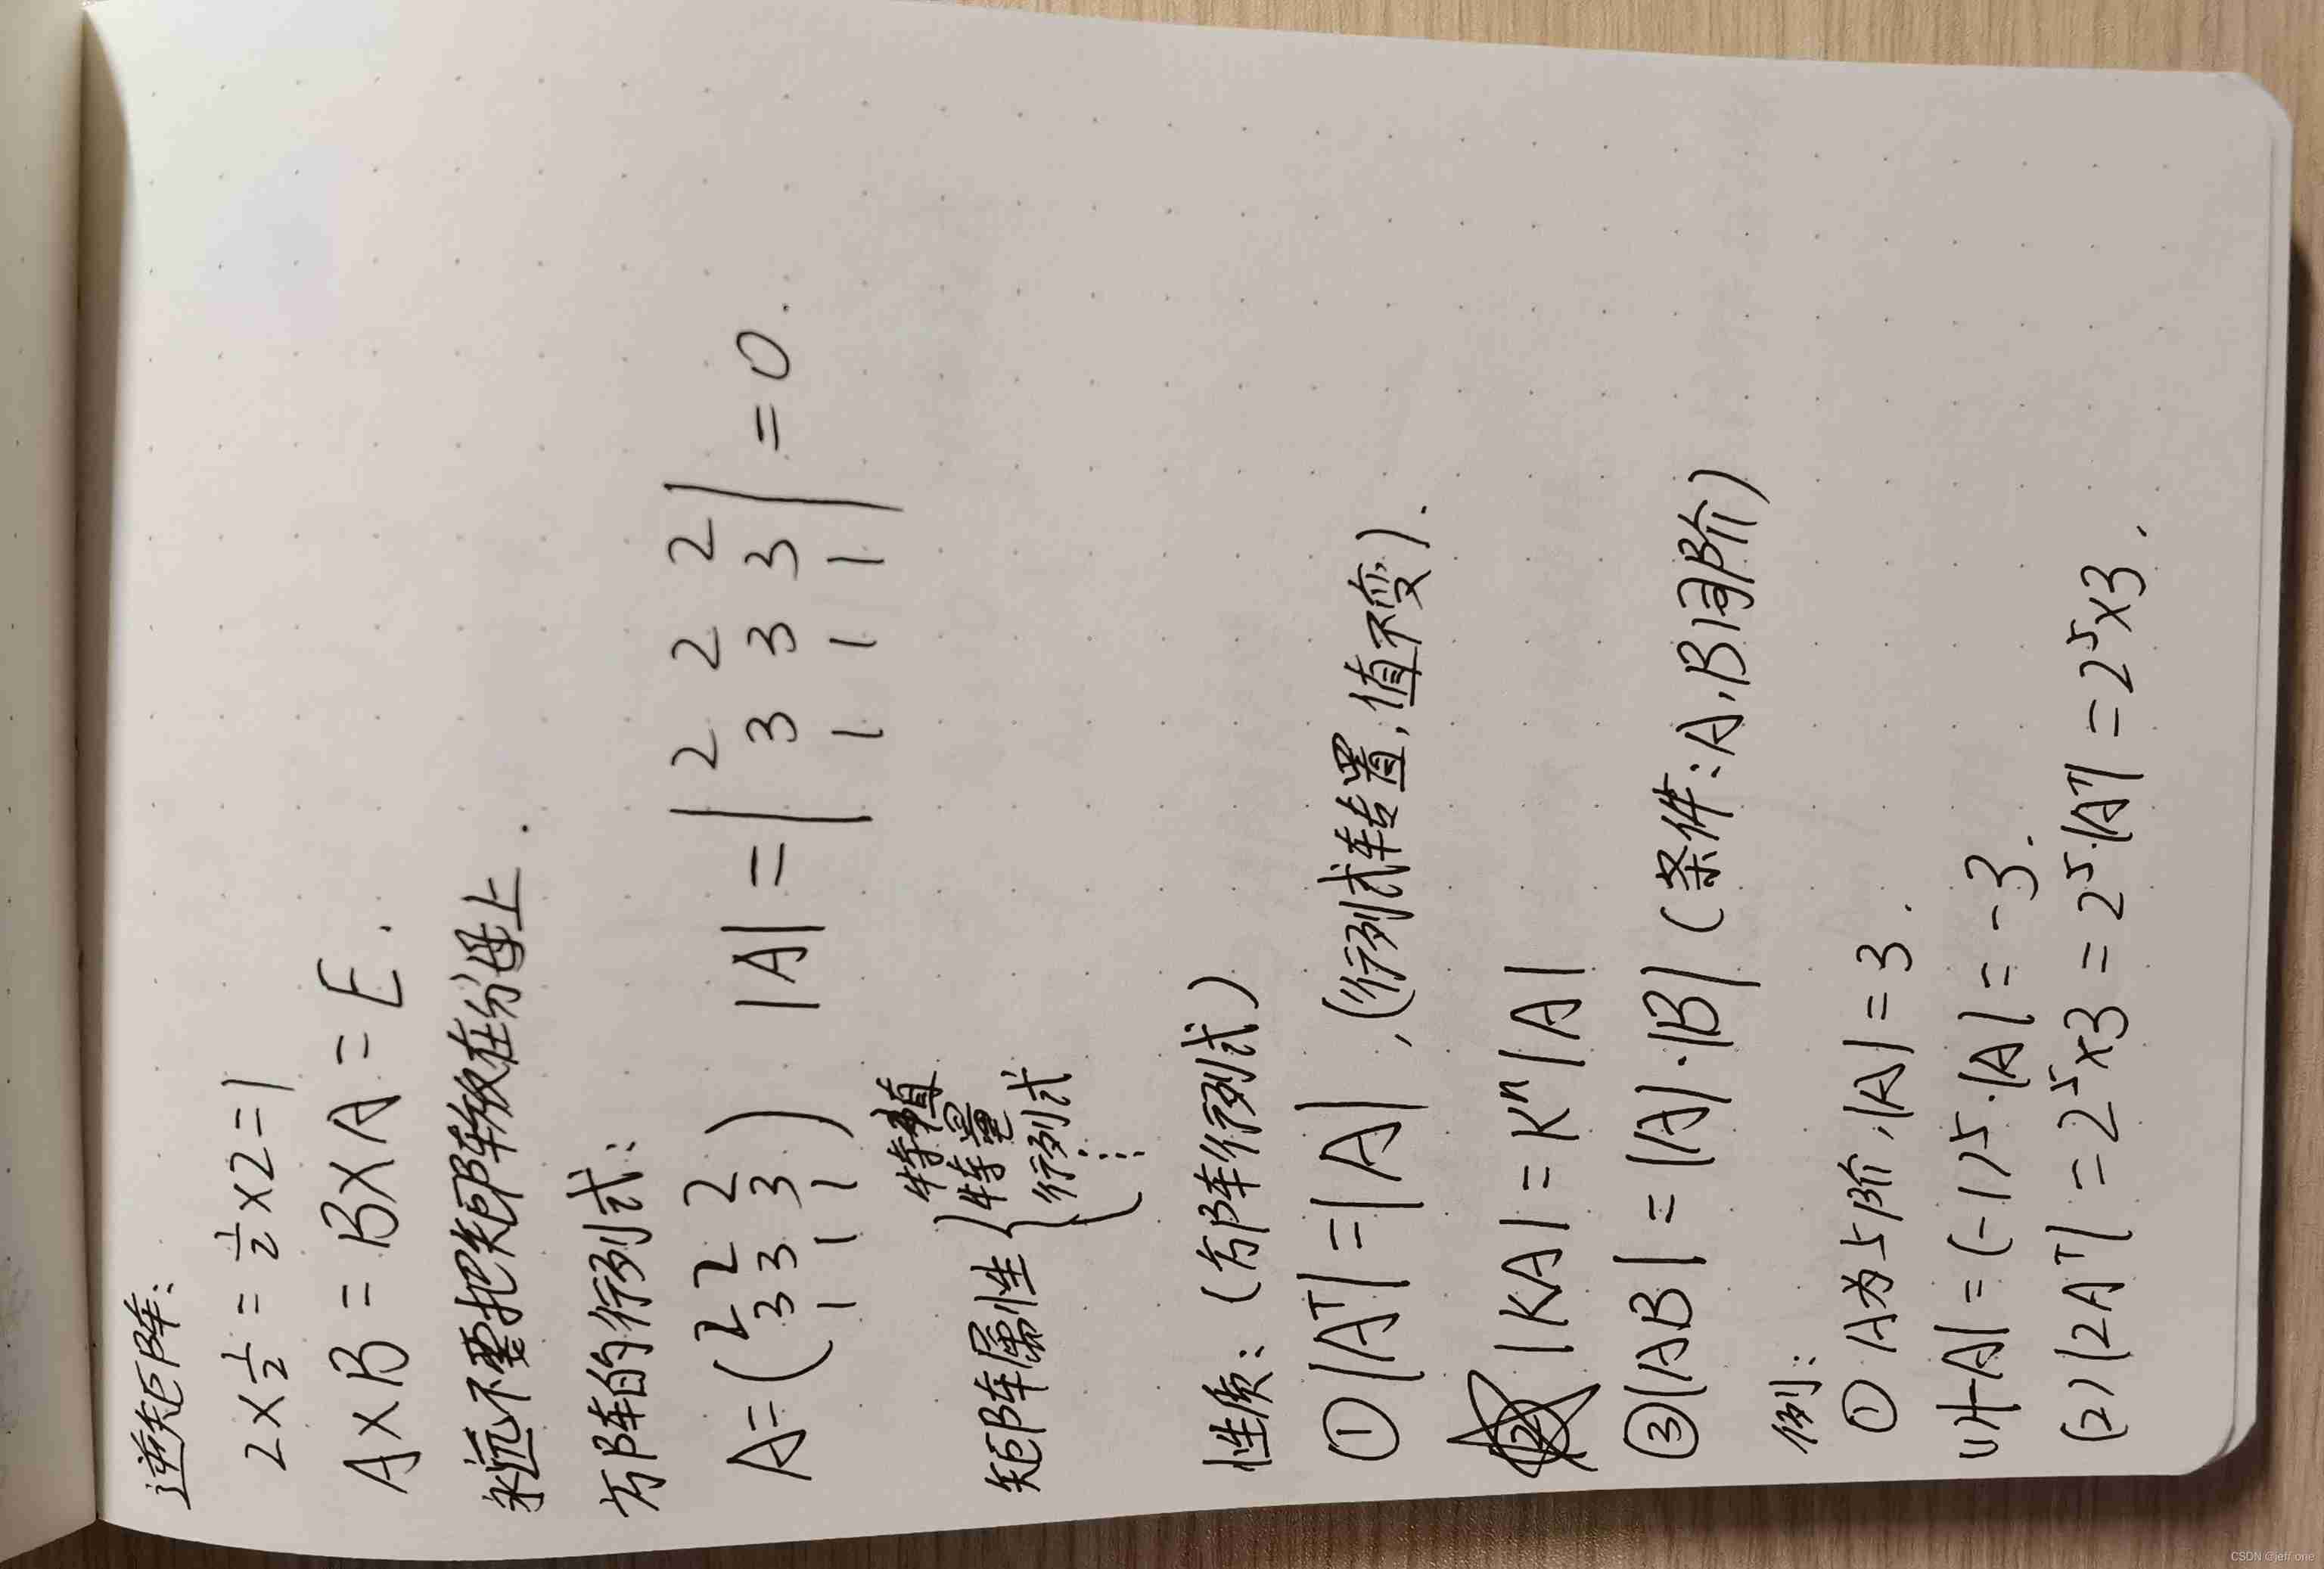 逆矩阵：
2×½=½×2=1
A×B=B×A=E.
永远不要把矩阵放在分母上.
方阵的行列式：
A=(2 2 2
3 3 3
1 1 1) |A|=|2 2 2
3 3 3
1 1 1|=0.
矩阵属性{特值
特量
行列式
……
性质：(方阵行列式)
①|Aᵀ|=|A|,(行列式转置,值不变).
②|KA|=Kⁿ|A|
③|AB|=|A|·|B|(条件:A,B同阶)
例：
① A为5阶,|A|=3.
(1)|-A|=(-1)⁵·|A|=-3.
(2)|2Aᵀ|=2⁵×3=2⁵·|Aᵀ|=2⁵×3.
CSDN @jeff one